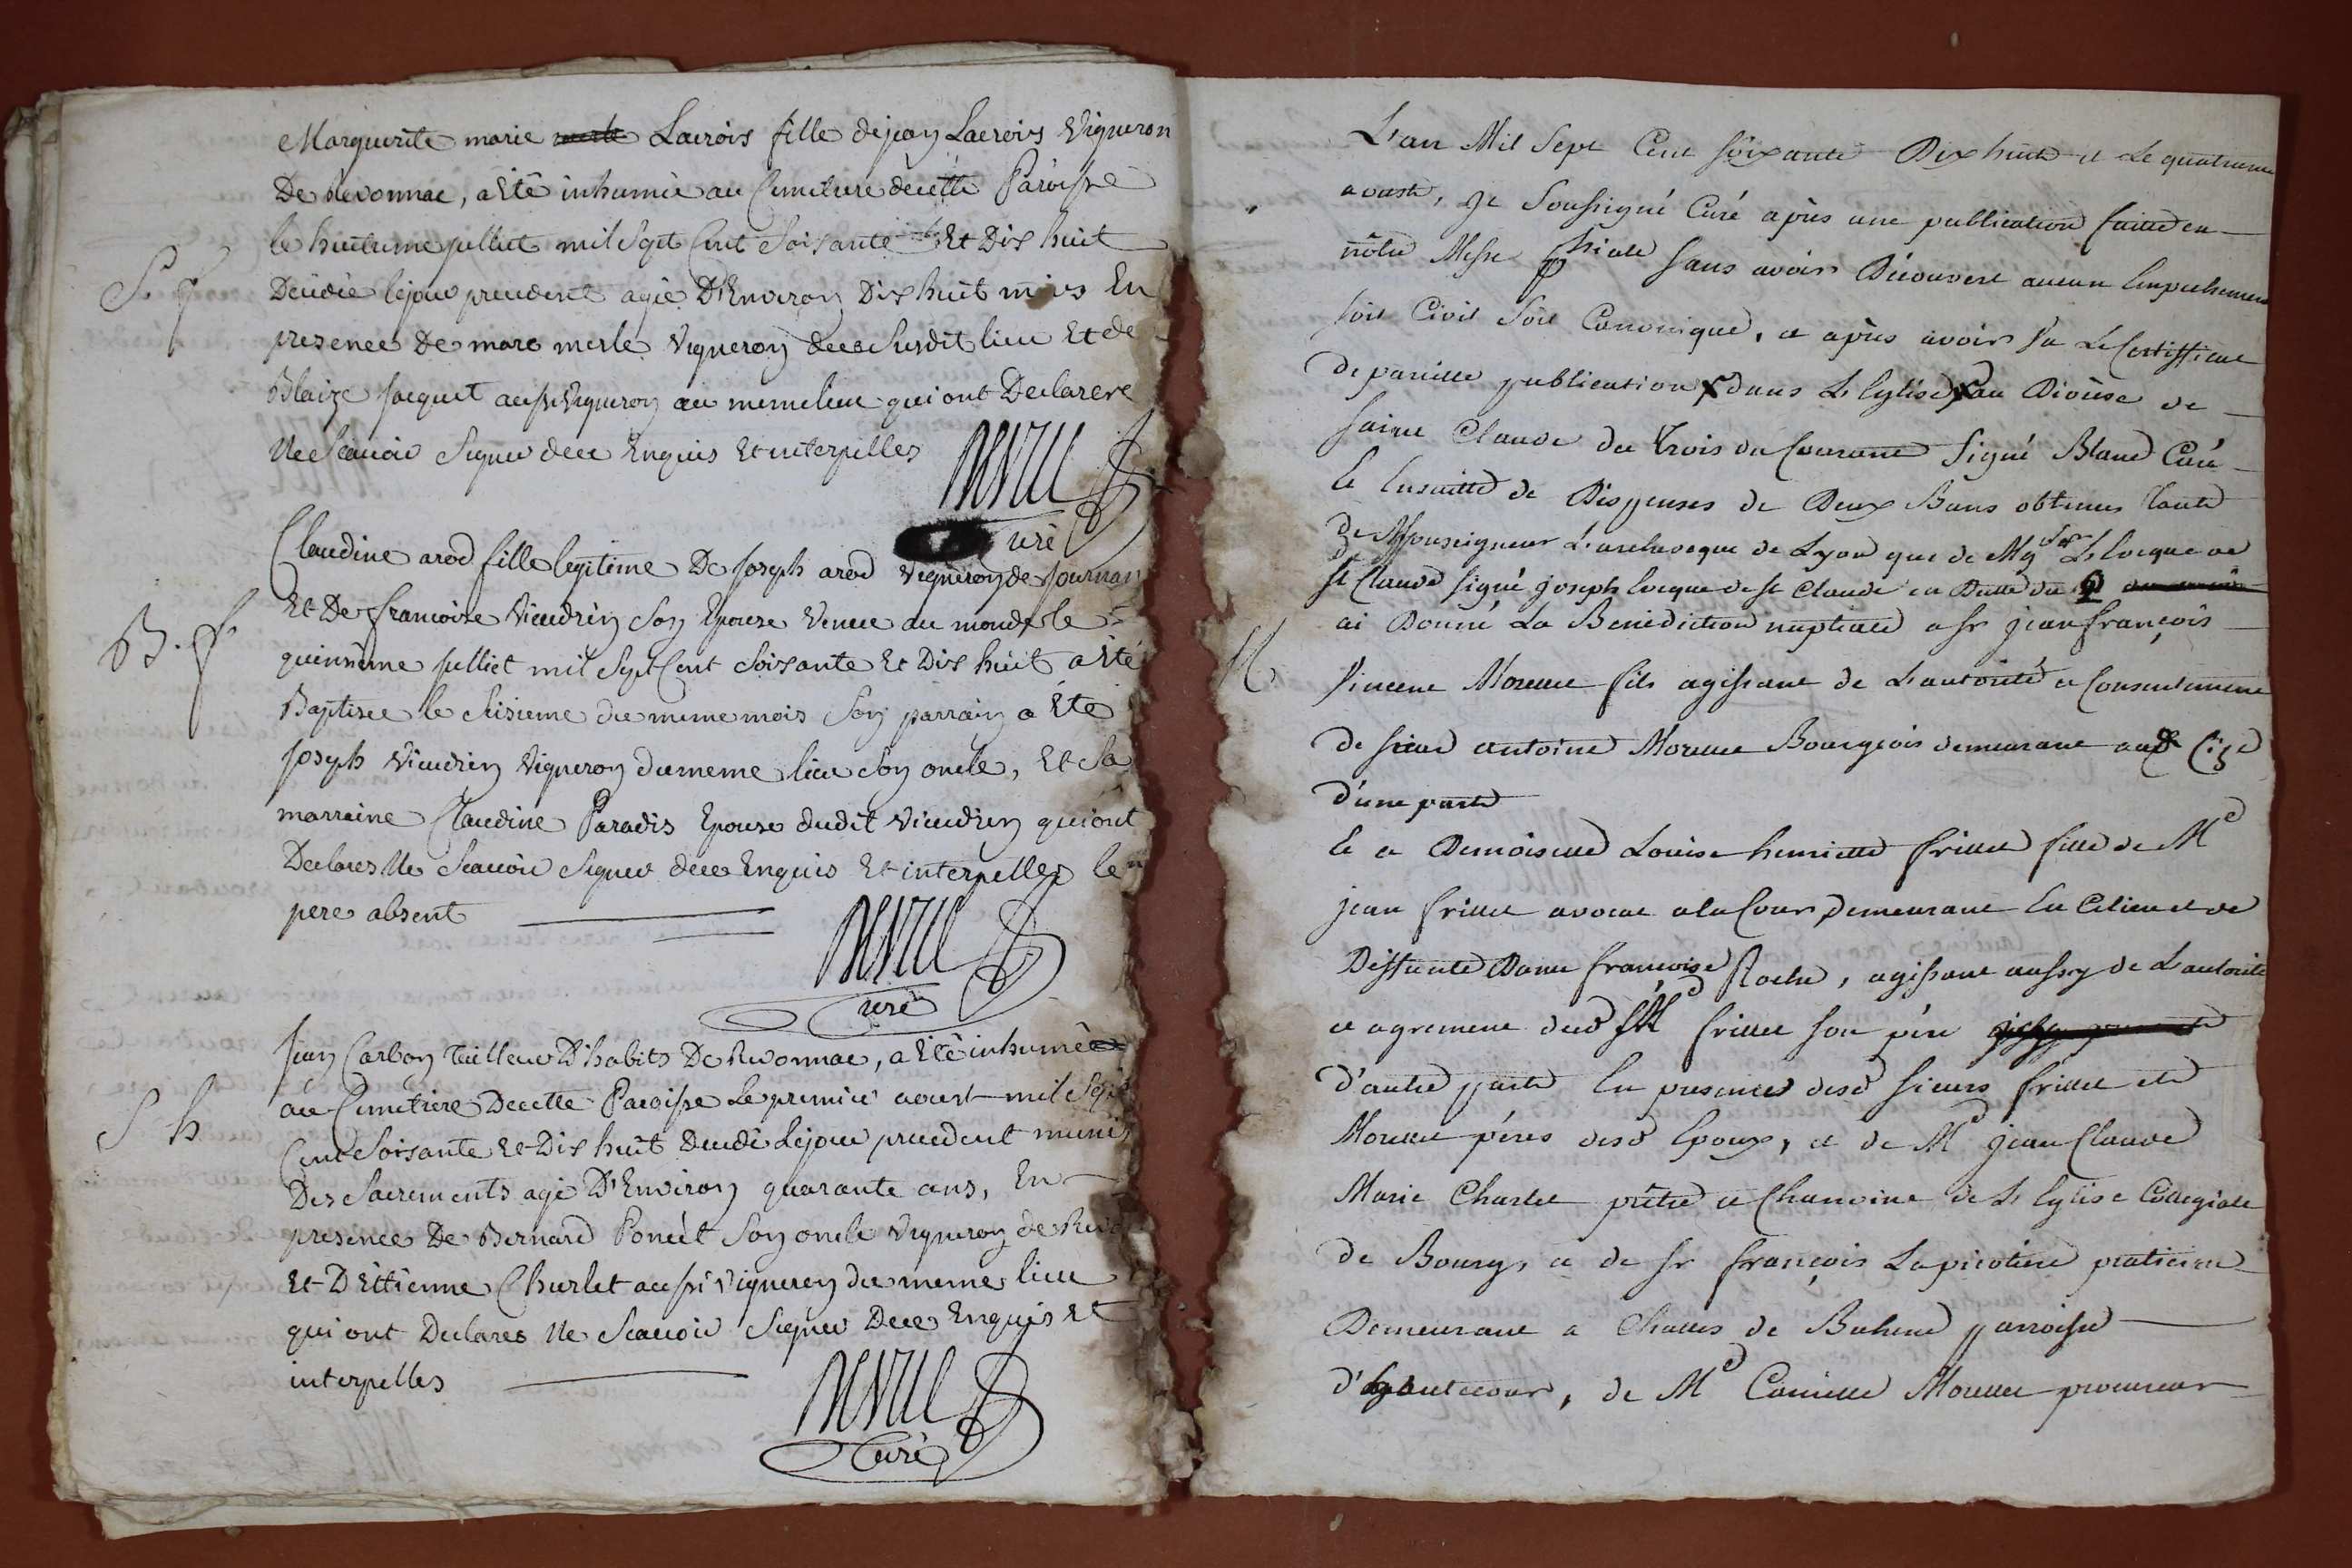 Marguerite marie Lacrois fille de jean Lacrois Vigneron
De Revonnac, a Eté inhumée au Cimetiere de cette Paroisse
le huitieme juillet mil Sept Cent Soisante Et Dix huit
S. f
Décédée le jour precedent agée D'Environ Dix huit mois En
presence De marc merle Vigneron du Susdit lieu Et de
Blaize Jacquet aussi Vigneron au meme lieu qui ont Declarere
Ne Scavoir Signer de ce Enquis Et interpelles
curé
Claudine arod fille legitime De Joseph arod Vigneron de Journan
Et De francoise Vieudrin Son Epouse Venue au monde le
B. f.
quinsieme Julliet mil Sept Cent Soisante Et Dix huit a Eté
Baptisee le Seisieme du meme mois Son parrain a Eté
Joseph Vieudrin Vigneron du meme lieu Son oncle, Et Sa
marraine Claudine Paradis Epouse dudit Vieudrin qui ont
Declares Ne Scavoir Signer de ce Enquis Et interpelles le
pere absent
curé
Jean Carbon Tailleur D'habits De Revonnac, a Eté inhumé
au Cimetiere De cette Paroisse Le premier aoust mil Sept
S h
Cent Soisante Et Dix huit Decedé Le jour precedent muni
Des Sacrements agé D'Environ quarante ans, En
presence De Bernard Poncet Son oncle Vigneron de Revo
Et D'Ettienne Churlet aussi Vigneron du meme lieu
qui ont Declares Ne Scavoir Signer De ce Enquis Et
interpelles
Curé
L'an Mil Sept Cent Soixante Dix huit et Le quatrieme
aoust, Je Soussigné Curé après une publication faitte en
nôtre Messe Sans avoir Découvert aucun Empechement
soit Civil Soit Canonique, et après avoir vu Le Certifficat
de pareille publication dans L'Eglise au Diocèse de
Saint Claude du trois du Courant Signé Bland Curé
Et Ensuitte de Dispenses de Deux Bans obtenus tant
de Monseigneur L'archeveque de Lyon que de Mgr L'Eveque de
St Claude signé joseph Eveque de St Claude en Datte du
ai Donné La Benediction nuptiale a Sr jean françois
M.
Vincent Morellet fils agissant de L'autorité et Consentement
de Sieur antoine Morellet Bourgeois demeurant aud Cize
d'une part
Et a Demoiselle Louise henriette frillet fille de Me
jean frillet avocat a la Cour Demeurant En Ce lieu et de
Deffunte Dame francoise Roche, agissant aussy de L'autorité
et agrement dud frillet Son père
d'autre part En presences desd Sieurs frillet et
Morellet pères desd Epoux, et de Me jean Claude
Marie Charlet prêtre et Chanoine de L'Eglise Collegiale
de Bourg, et de Sr françois Lapirotiere praticien
Demeurant a Challes de Bohene parroisse
d'hautecour, de Me Camille Morellet procureur